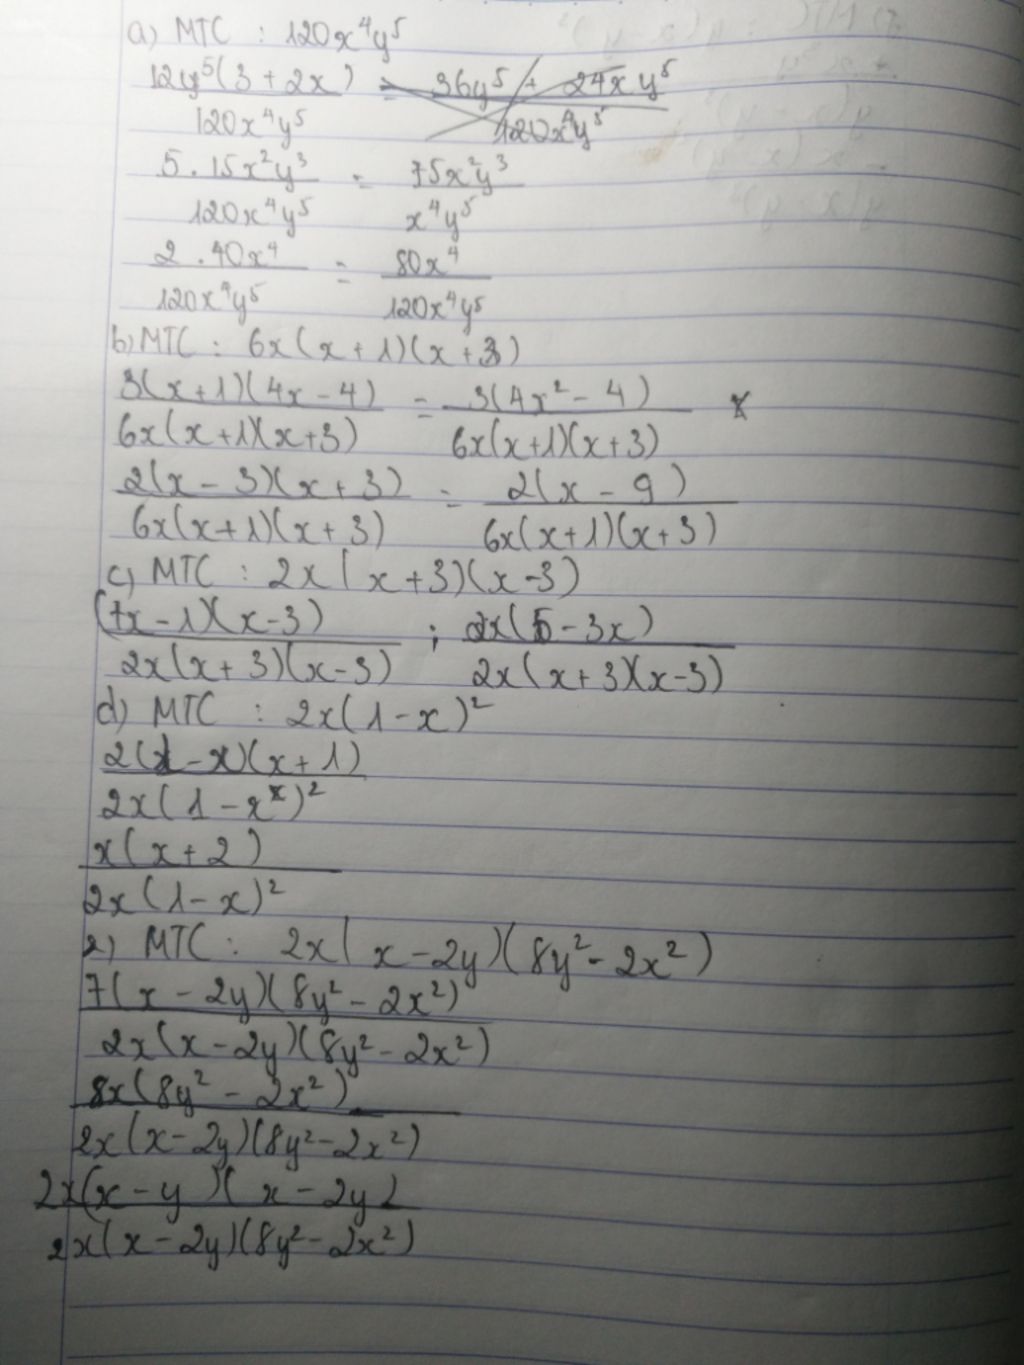 a) MTC : 120x⁴y⁵
12y⁵(3 + 2x) = 36y⁵ + 24xy⁵
120x⁴y⁵ 120x⁴y⁵
5.15x²y³ = 75x²y³
120x⁴y⁵ x⁴y⁵
2.40x⁴ = 80x⁴
120x⁴y⁵ 120x⁴y⁵
b) MTC : 6x(x+1)(x+3)
3(x+1)(4x-4) = 3(4x²-4)
6x(x+1)(x+3) 6x(x+1)(x+3)
2(x-3)(x+3) = 2(x-9)
6x(x+1)(x+3) 6x(x+1)(x+3)
c) MTC : 2x(x+3)(x-3)
(7x-1)(x-3) ; 2x(5-3x)
2x(x+3)(x-3) 2x(x+3)(x-3)
d) MTC : 2x(1-x)²
2(1-x)(x+1)
2x(1-x)²
x(x+2)
2x(1-x)²
e) MTC : 2x(x-2y)(8y²-2x²)
7(x-2y)(8y²-2x²)
2x(x-2y)(8y²-2x²)
8x(8y²-2x²)
2x(x-2y)(8y²-2x²)
2x(x-y)(x-2y)
2x(x-2y)(8y²-2x²)